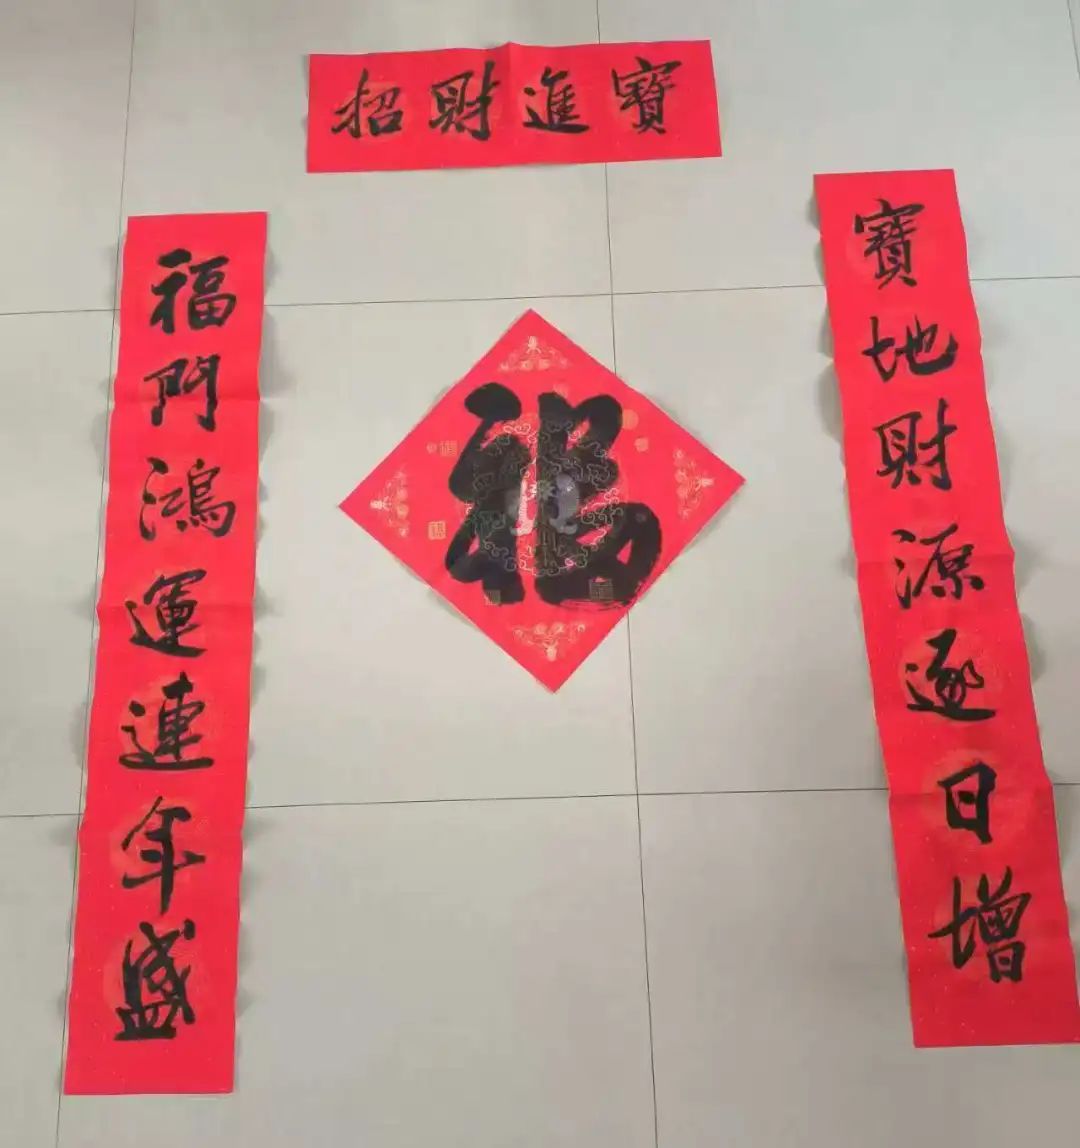 招財進寶
福門鴻運連年盛
福
寶地財源逐日增